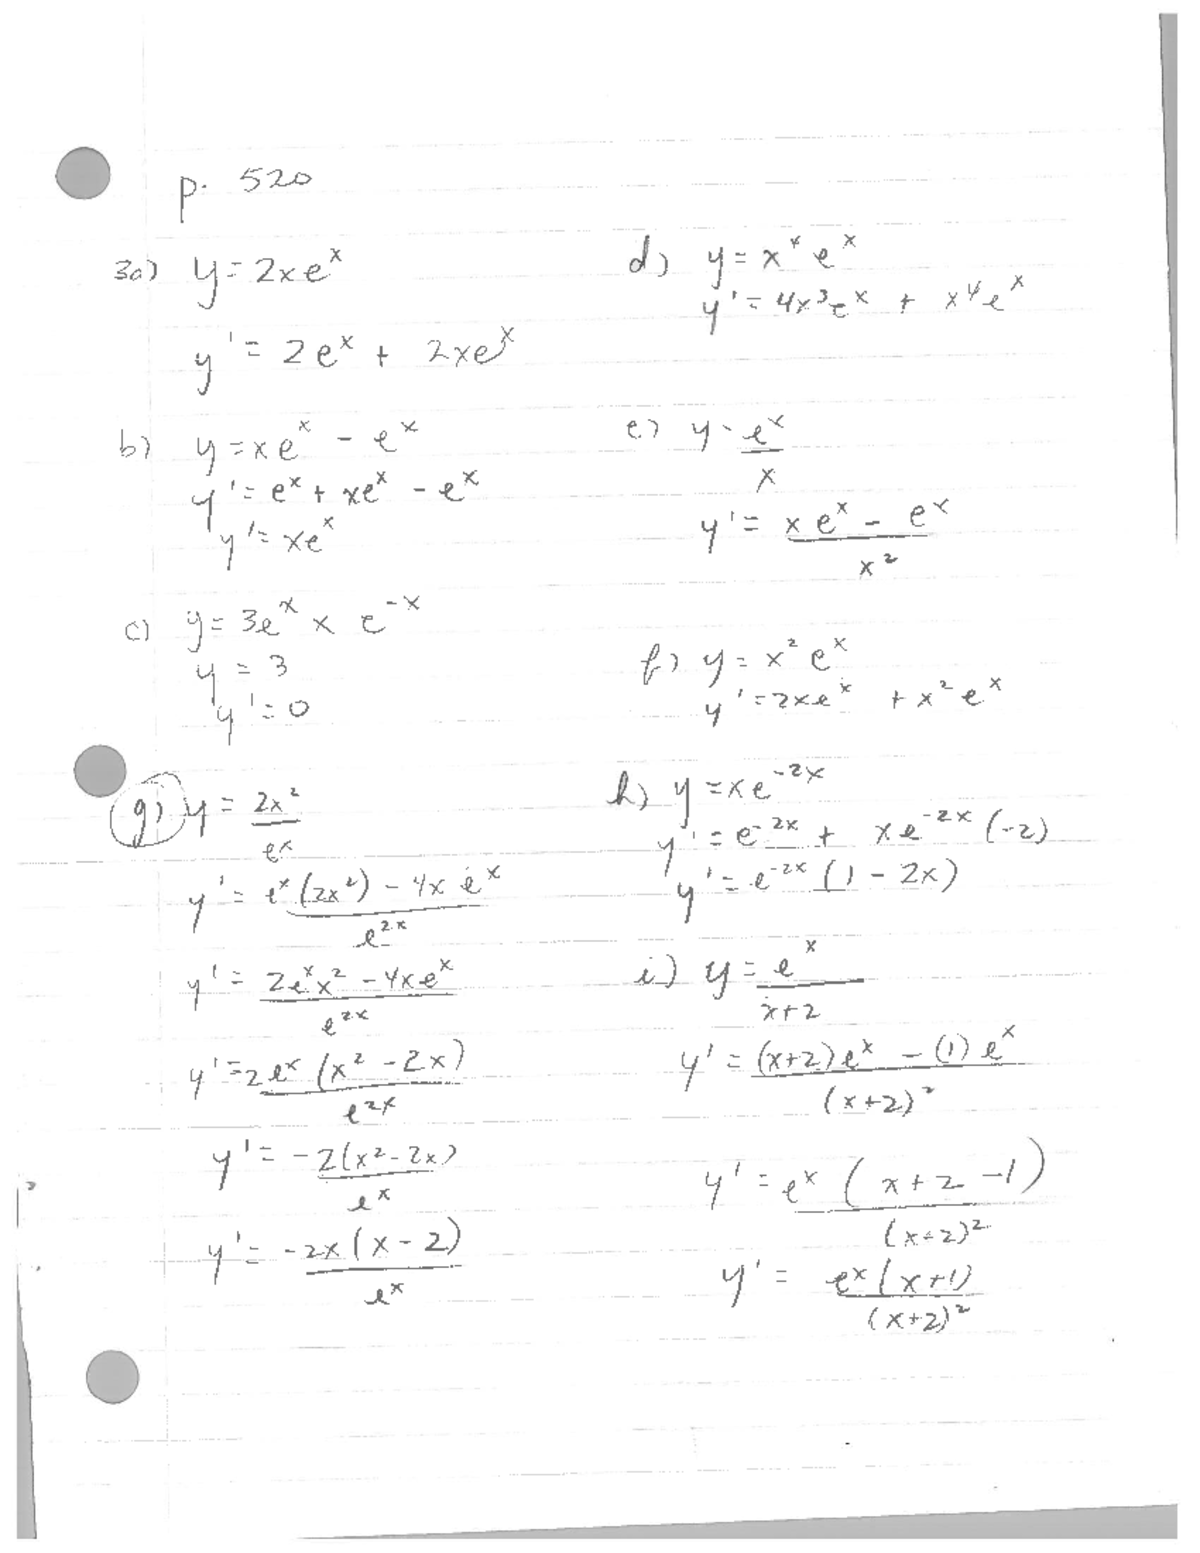 p. 520
3a) y = 2xe^x
y' = 2e^x + 2xe^x
b) y = xe^x - e^x
y' = e^x + xe^x - e^x
y' = xe^x
c) y = 3e^x x e^-x
y = 3
y' = 0
d) y = x^4 e^x
y' = 4x^3e^x + x^4e^x
e) y = e^x / x
y' = xe^x - e^x / x^2
f) y = x^2 e^x
y' = 2xe^x + x^2 e^x
g) y = 2x^2 / e^x
y' = e^x(2x^2) - 4x e^x / e^2x
y' = 2e^x x^2 - 4xe^x / e^2x
y' = 2e^x (x^2 - 2x) / e^2x
y' = -2(x^2 - 2x) / e^x
y' = -2x(x - 2) / e^x
h) y = xe^-2x
y' = e^-2x + xe^-2x (-2)
y' = e^-2x (1 - 2x)
i) y = e^x / x+2
y' = (x+2)e^x - (1)e^x / (x+2)^2
y' = e^x (x+2 -1) / (x+2)^2
y' = e^x(x+1) / (x+2)^2